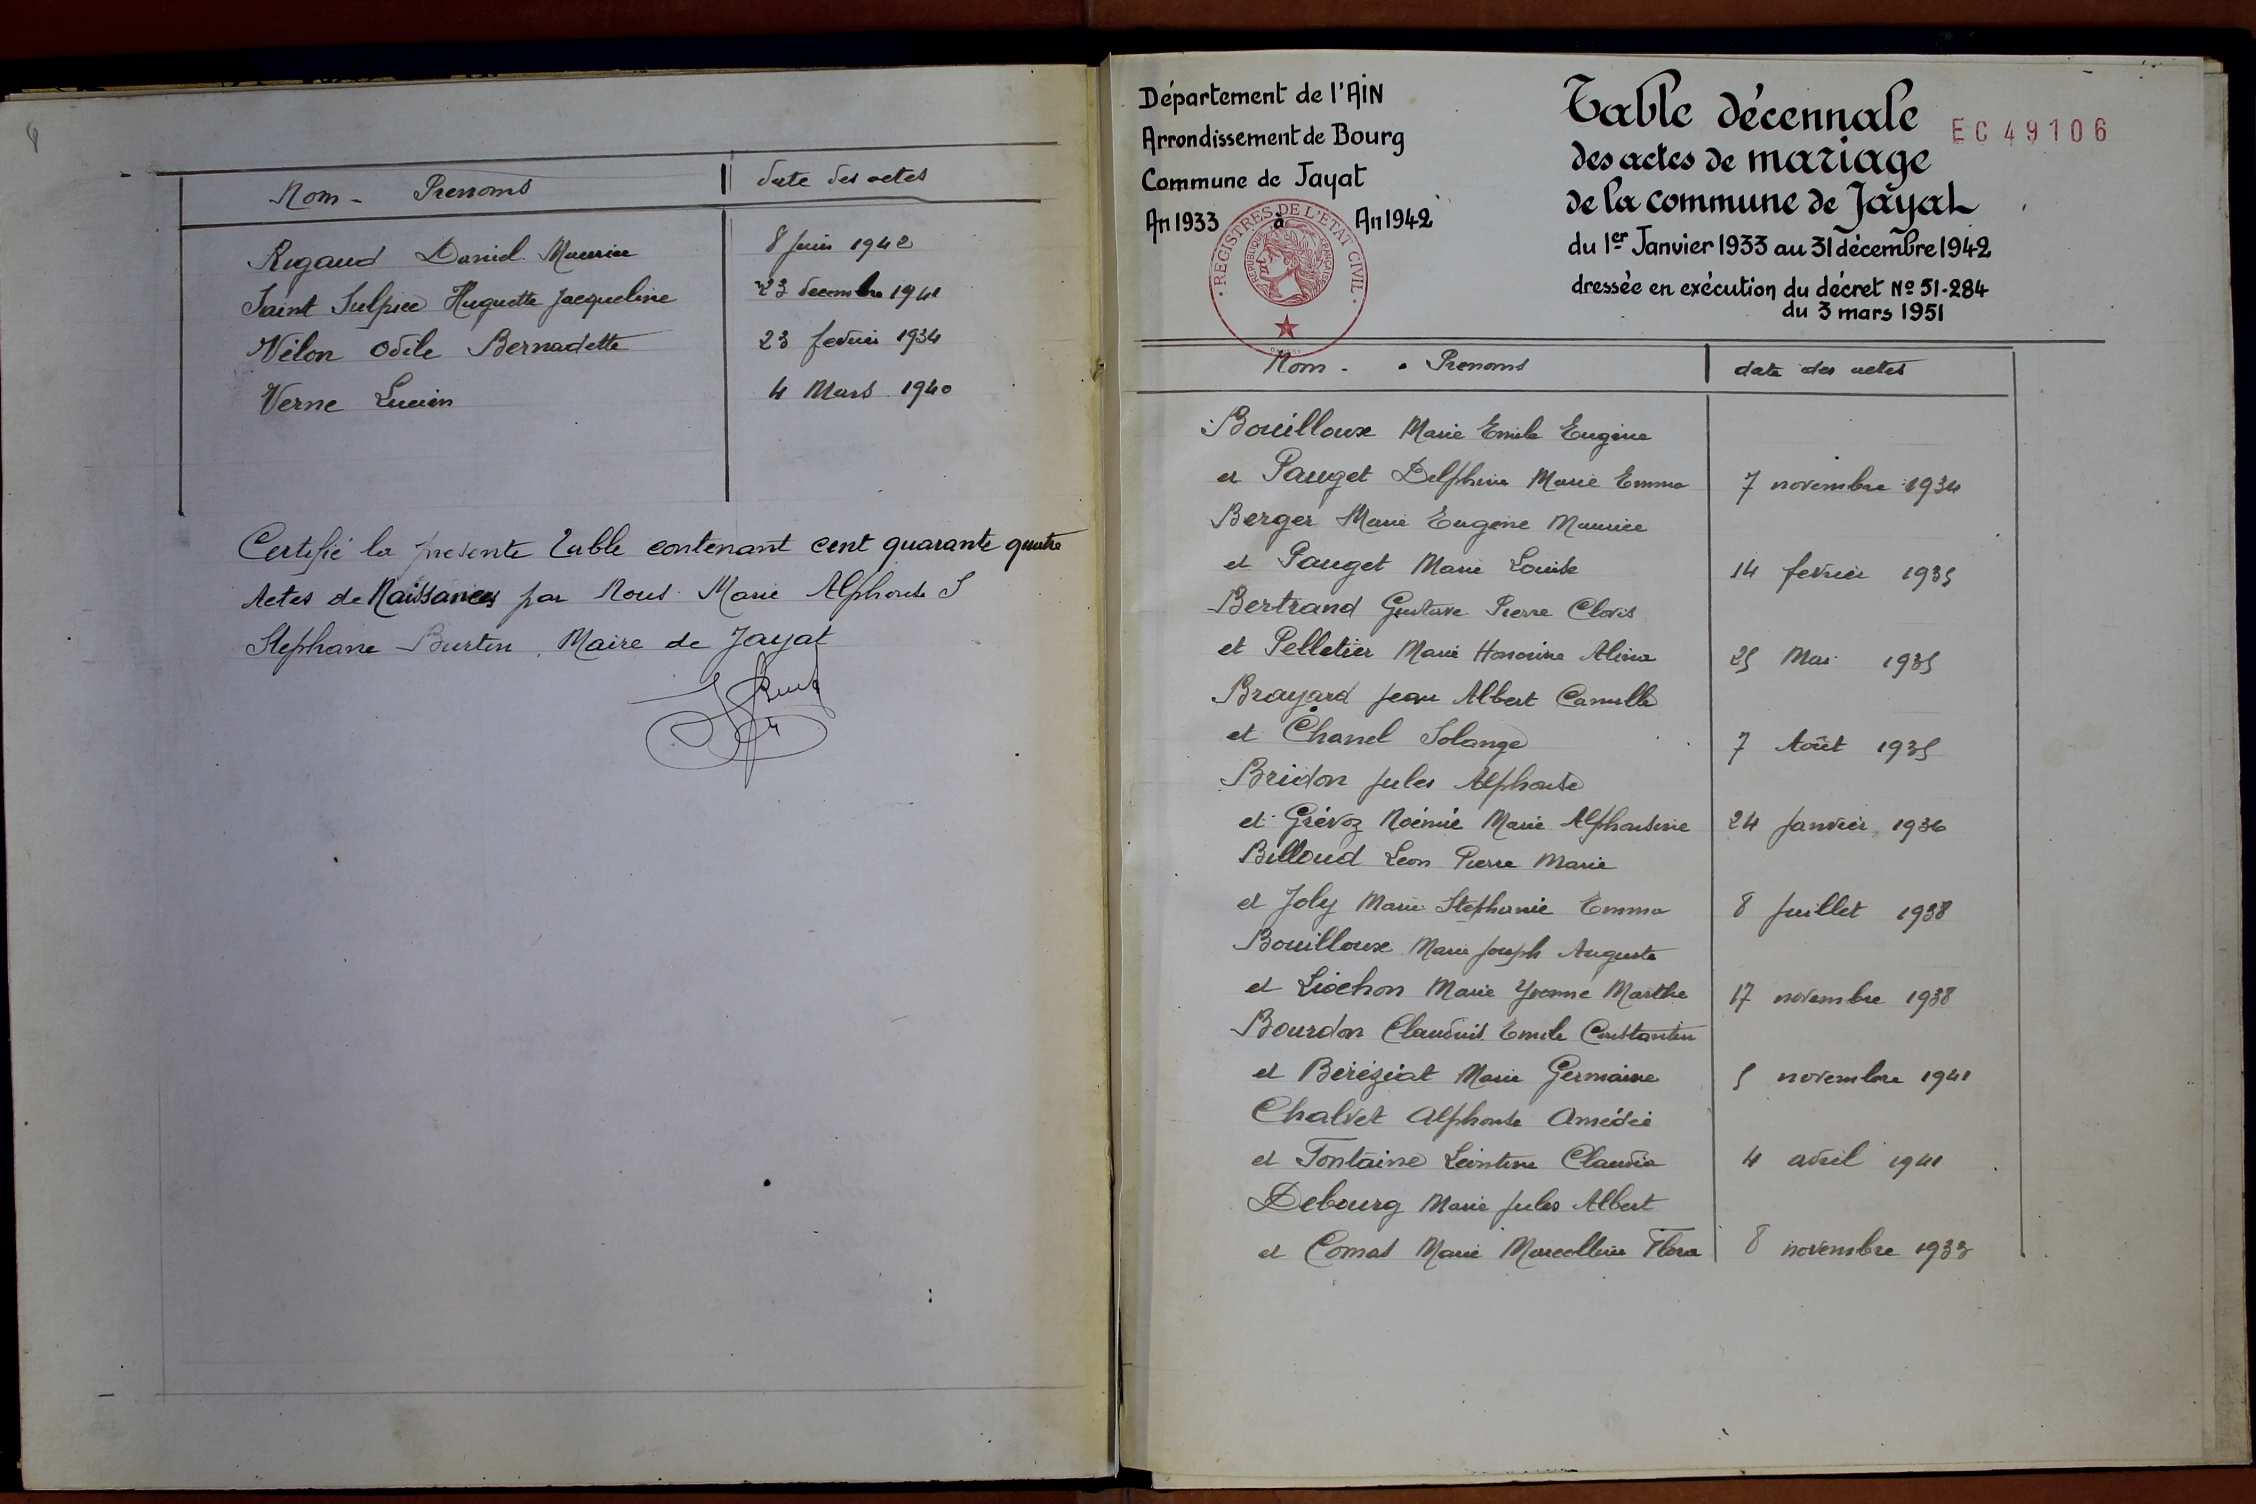 Nom - Prenoms date des actes
Rigaud Daniel Maurice 8 Juin 1942
Saint Sulpice Huguette Jacqueline 23 decembre 1941
Vélon Odile Bernadette 23 fevrier 1934
Verne Lucien 4 Mars 1940
Certifié la presente table contenant cent quarante quatre
Actes de Naissances par Nous Marie Alphonse S
Stephane Burtin, Maire de Jayat
Département de l'AIN
Arrondissement de Bourg
Commune de Jayat
An 1933 à An 1942
REGISTRES DE L'ETAT CIVIL
REPUBLIQUE FRANCAISE
Table décennale
EC49106
des actes de mariage
de la commune de Jayat
du 1er Janvier 1933 au 31 décembre 1942
dressée en exécution du décret No 51-284
du 3 mars 1951
Nom - Prenoms date des actes
Bouilloux Marie Emile Eugène
et Pauget Delphine Marie Emma 7 novembre 1934
Berger Marie Eugene Maurice
et Pauget Marie Louise 14 fevrier 1935
Bertrand Gustave Pierre Clovis
et Pelletier Marie Honorine Alina 25 Mai 1935
Brayard Jean Albert Camille
et Chanel Solange 7 Août 1935
Bridon Jules Alphonse
et Grévoz Noémie Marie Alphonsine 24 Janvier 1936
Billoud Leon Pierre Marie
et Joly Marie Stephanie Emma 8 Juillet 1938
Bouilloux Marie Joseph Auguste
et Liochon Marie Yvonne Marthe 17 novembre 1938
Bourdon Claudius Emile Constantin
et Béréziat Marie Germaine 5 novembre 1941
Chalvet Alphonse Amédée
et Fontaine Leontine Claudia 4 avril 1941
Debourg Marie Jules Albert
et Comas Marie Marcelline Flora 8 novembre 1933